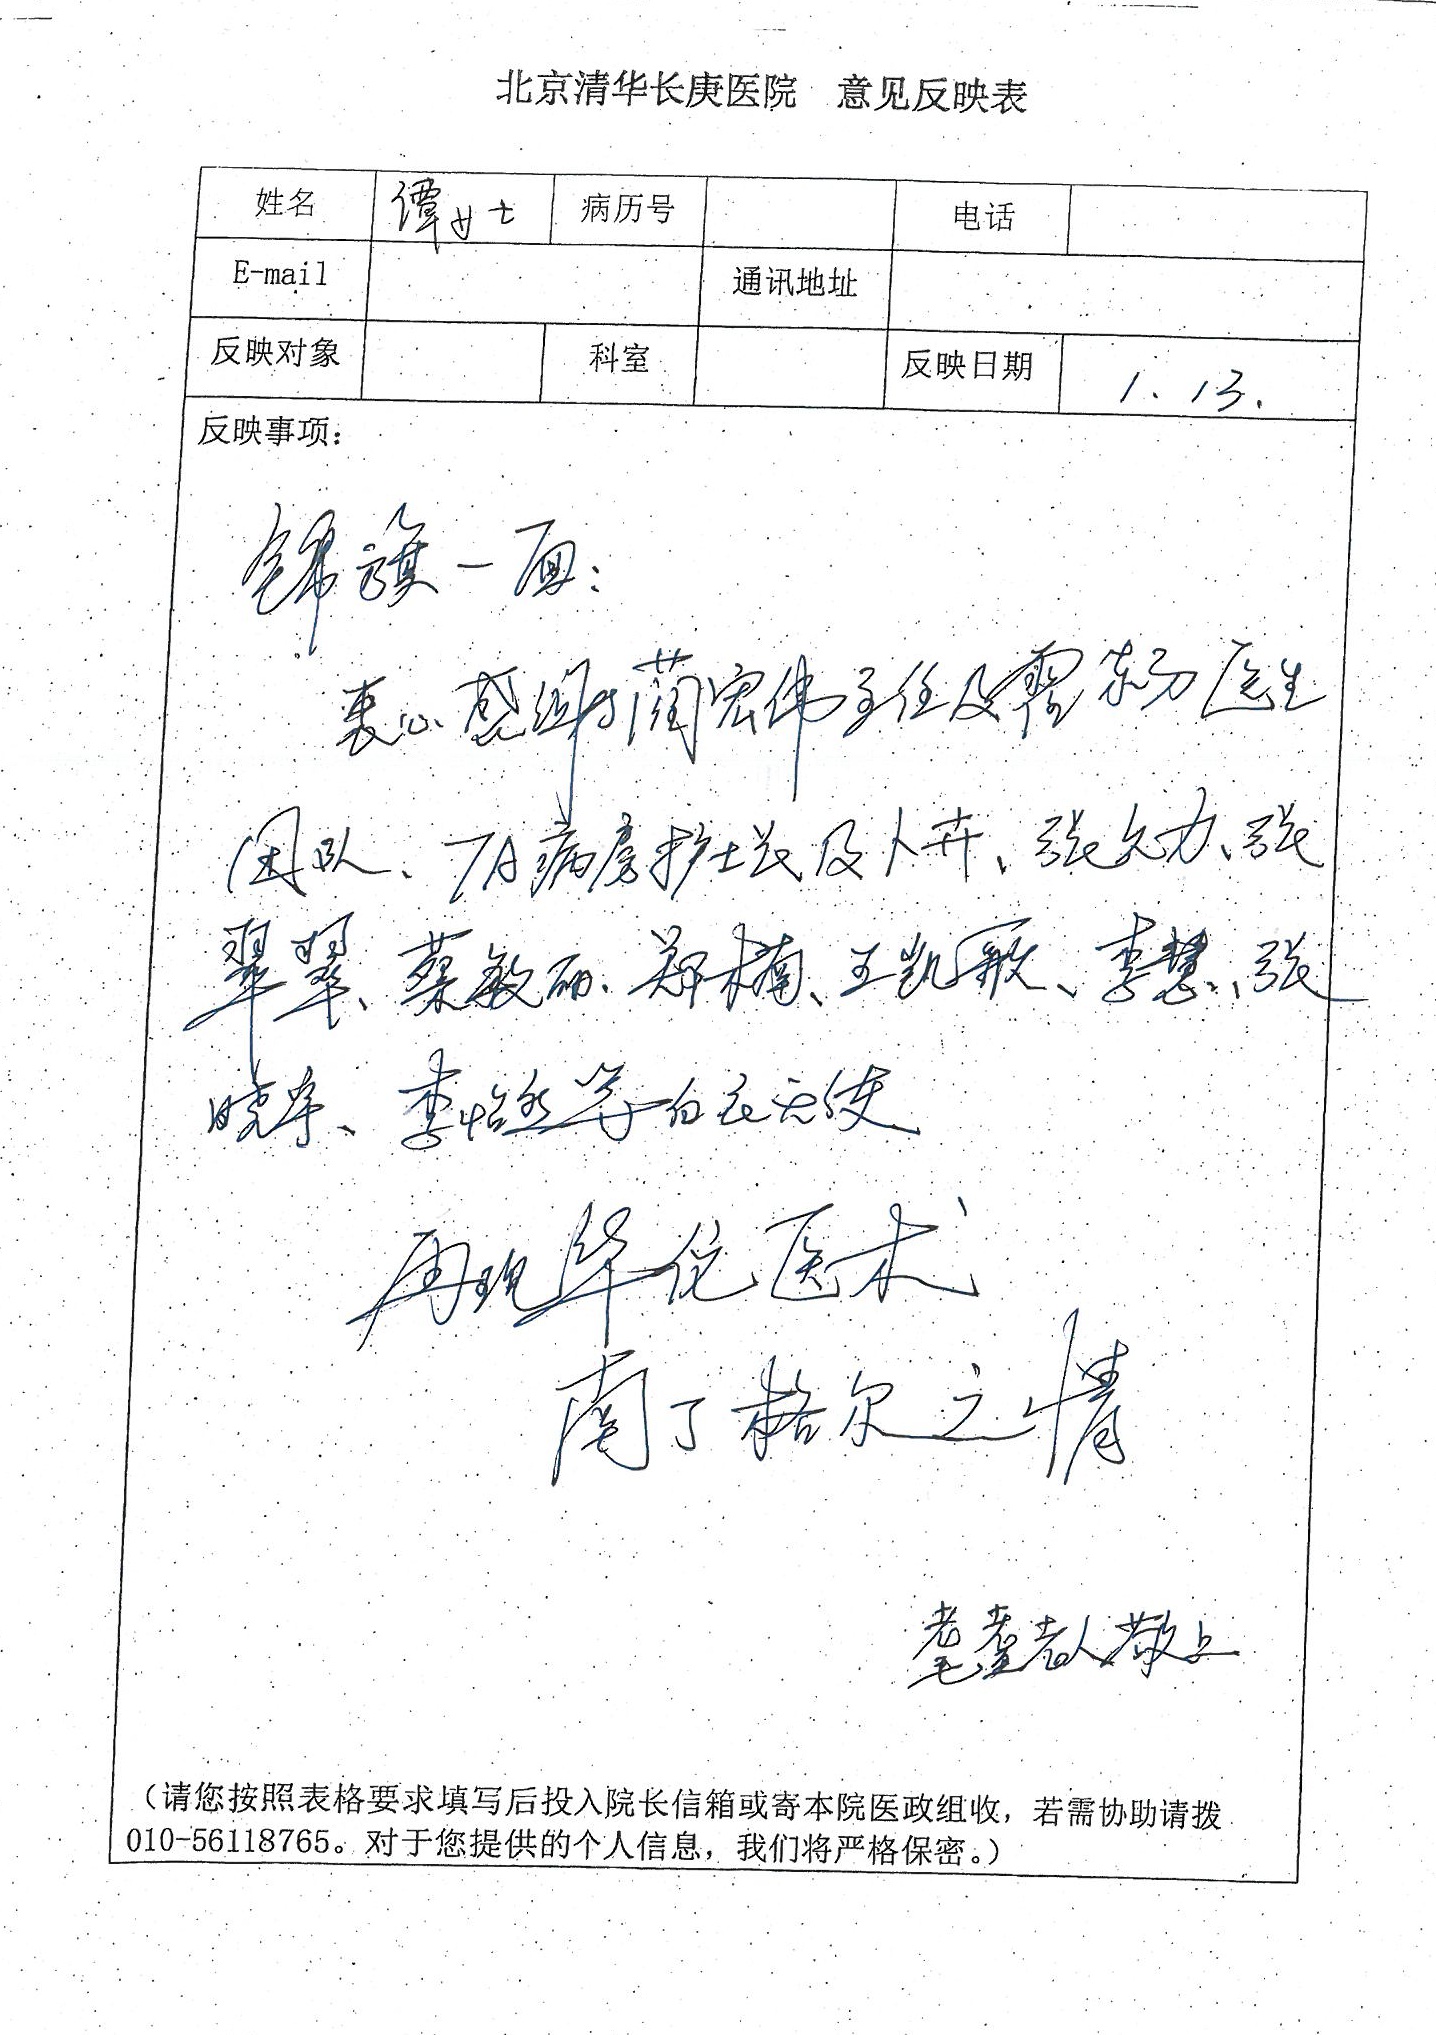 北京清华长庚医院 意见反映表
姓名 谭女士 病历号 电话
E-mail 通讯地址
反映对象 科室 反映日期 1.13.
反映事项：
锦旗一面：
衷心感谢蔺宏伟主任及翟东方医生
团队、7A病房护士长及卜卉、张力、张
翠翠、蔡敏丽、郑楠、王凯敏、李慧、张
晓宇、李怡然等白衣天使
再现华佗医术
南丁格尔之情
耄耋老人敬上
（请您按照表格要求填写后投入院长信箱或寄本院医政组收，若需协助请拨
010-56118765。对于您提供的个人信息，我们将严格保密。）